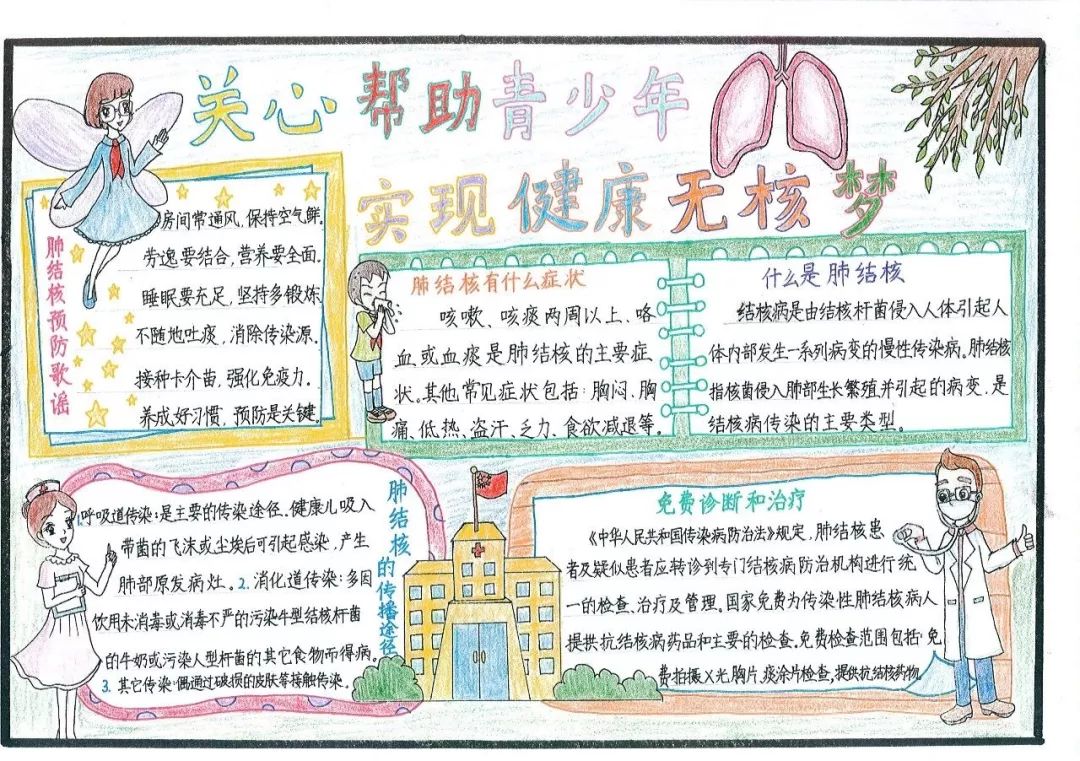 关心帮助青少年
实现健康无核梦
肺结核预防歌谣
房间常通风,保持空气鲜.
劳逸要结合,营养要全面.
睡眠要充足,坚持多锻炼.
不随地吐痰,消除传染源.
接种卡介苗,强化免疫力.
养成好习惯,预防是关键.
肺结核有什么症状
咳嗽、咳痰两周以上、咯
血或血痰是肺结核的主要症
状。其他常见症状包括:胸闷、胸
痛、低热、盗汗、乏力、食欲减退等。
什么是肺结核
结核病是由结核杆菌侵入人体引起人
体内部发生一系列病变的慢性传染病。肺结核
指核菌侵入肺部生长繁殖并引起的病变,是
结核病传染的主要类型。
肺结核的传播途径
1.呼吸道传染:是主要的传染途径。健康儿吸入
带菌的飞沫或尘埃后可引起感染,产生
肺部原发病灶。2.消化道传染:多因
饮用未消毒或消毒不严的污染牛型结核杆菌
的牛奶或污染人型杆菌的其它食物而得病。
3.其它传染:偶通过破损的皮肤等接触传染。
免费诊断和治疗
《中华人民共和国传染病防治法》规定,肺结核患
者及疑似患者应转诊到专门结核病防治机构进行统
一的检查、治疗及管理。国家免费为传染性肺结核病人
提供抗结核病药品和主要的检查。免费检查范围包括:免
费拍摄X光胸片,痰涂片检查,提供抗结核药物